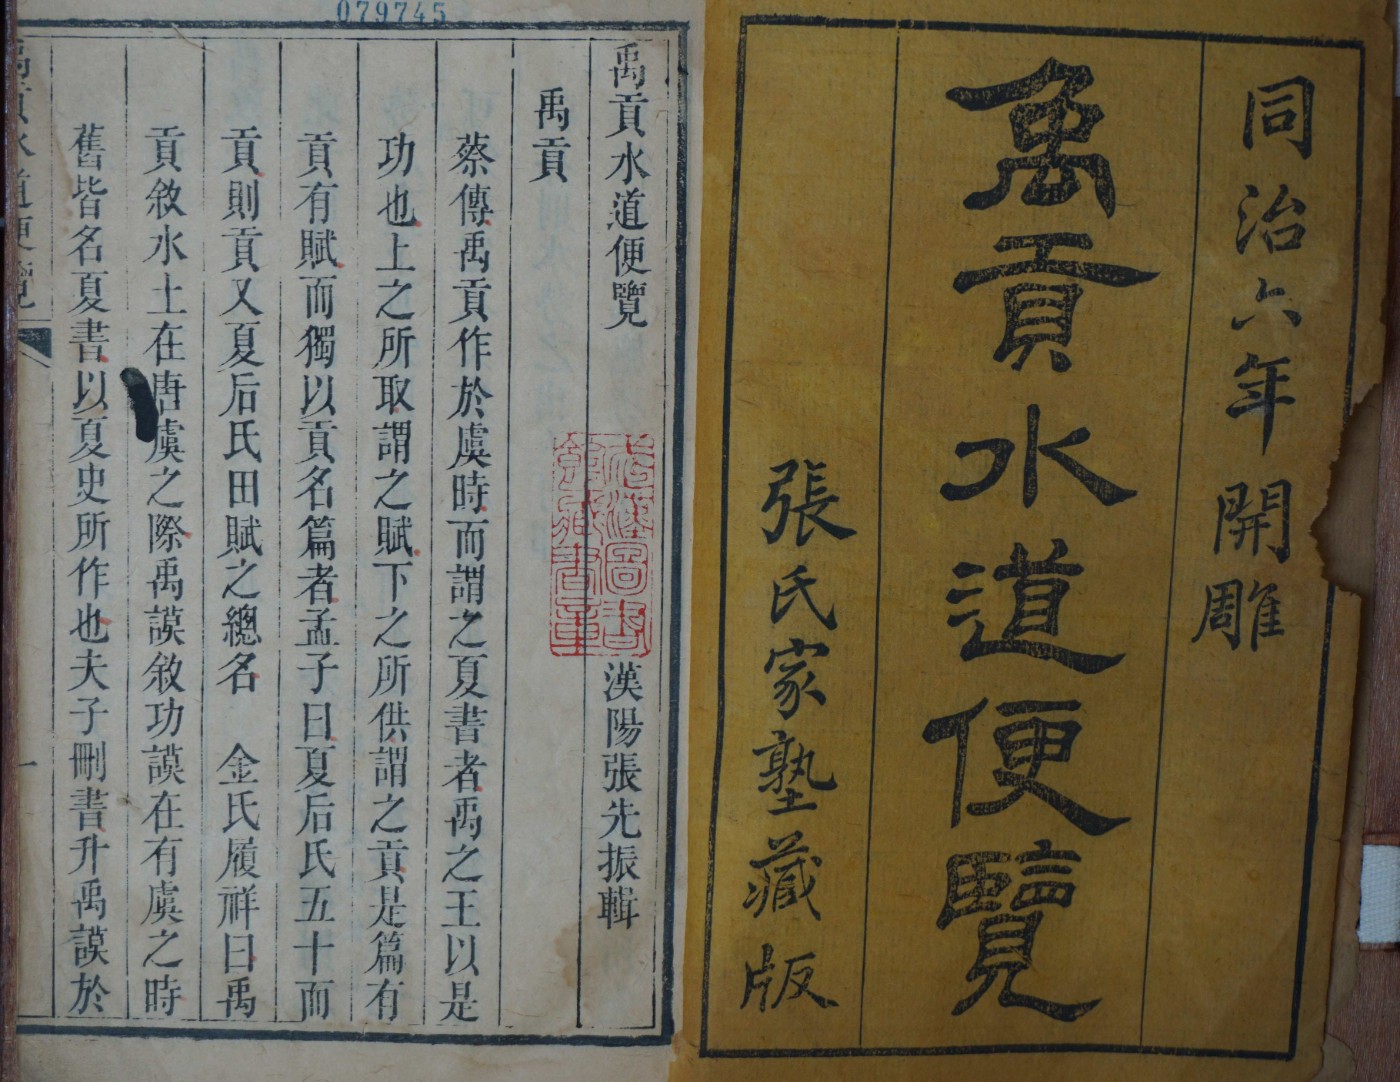 同治六年開雕
禹貢水道便覽
張氏家塾藏版
079745
禹貢水道便覽
漢陽張先振輯
禹貢
蔡傳禹貢作於虞時而謂之夏書者禹之王以是
功也上之所取謂之賦下之所供謂之貢是篇有
貢有賦而獨以貢名篇者孟子曰夏后氏五十而
貢則貢又夏后氏田賦之總名 金氏履祥曰禹
貢敘水土在唐虞之際禹謨敘功謨在有虞之時
舊皆名夏書以夏史所作也夫子刪書升禹謨於
禹貢水道便覽
一